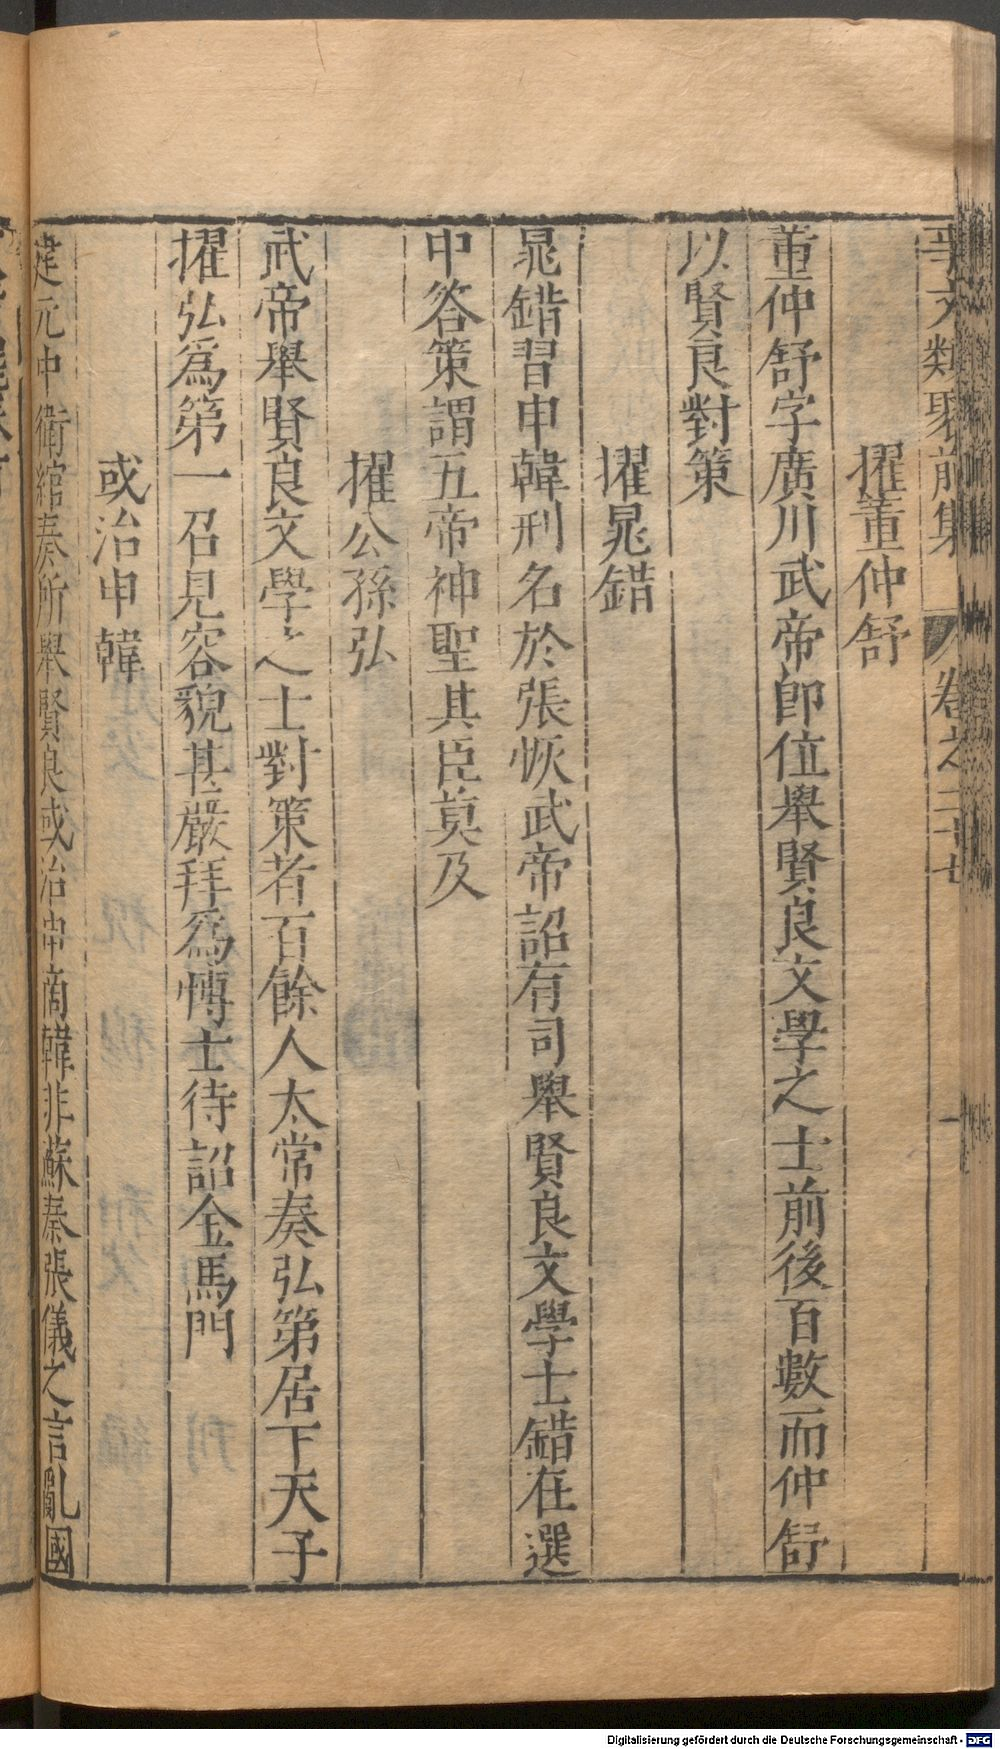 事文類聚前集 卷之二十七 一
擢董仲舒
董仲舒字廣川武帝卽位舉賢良文學之士前後百數而仲舒
以賢良對策
擢晁錯
晁錯習申韓刑名於張恢武帝詔有司舉賢良文學士錯在選
中答策謂五帝神聖其臣莫及
擢公孫弘
武帝舉賢良文學之士對策者百餘人太常奏弘第居下天子
擢弘爲第一召見容貌甚嚴拜爲博士待詔金馬門
或治申韓
建元中衛綰奏所舉賢良或治申商韓非蘇秦張儀之言亂國
Digitalisierung gefördert durch die Deutsche Forschungsgemeinschaft - DFG